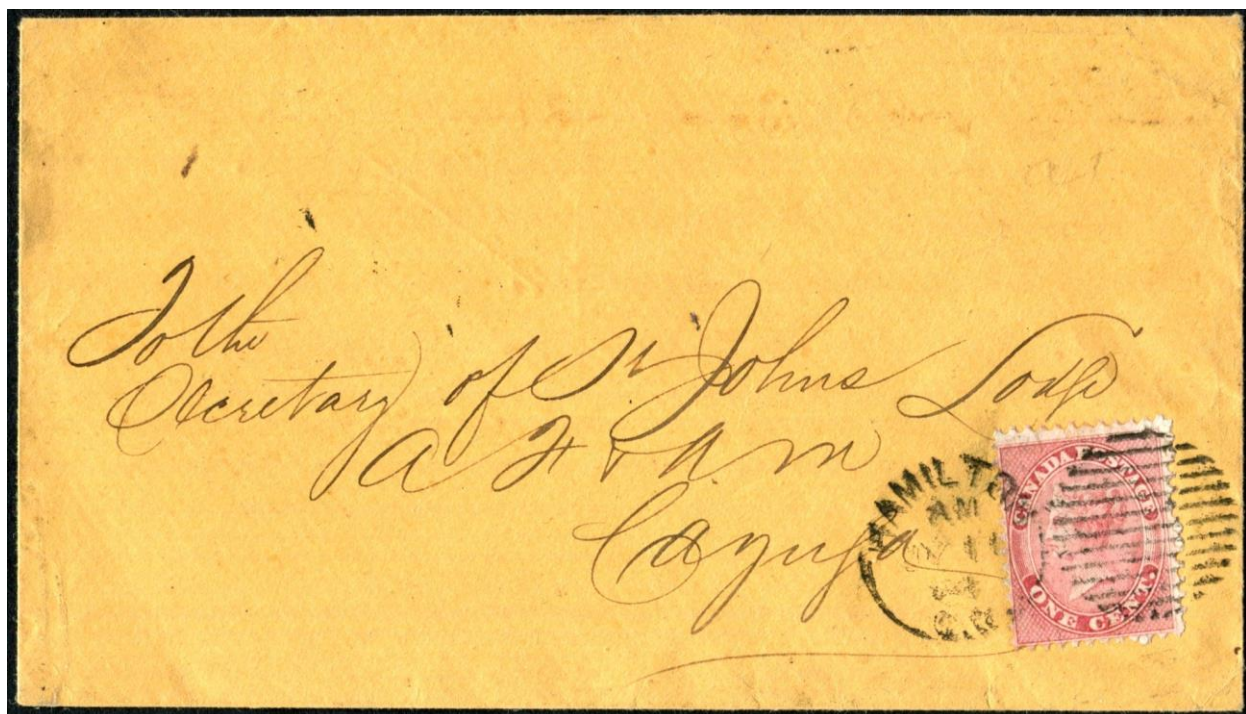 To the
Secretary of St Johns Lodge
A F & A M
Cayuga
HAMILTO
AM
11
C.W
CANADA POSTAGE
ONE CENT.